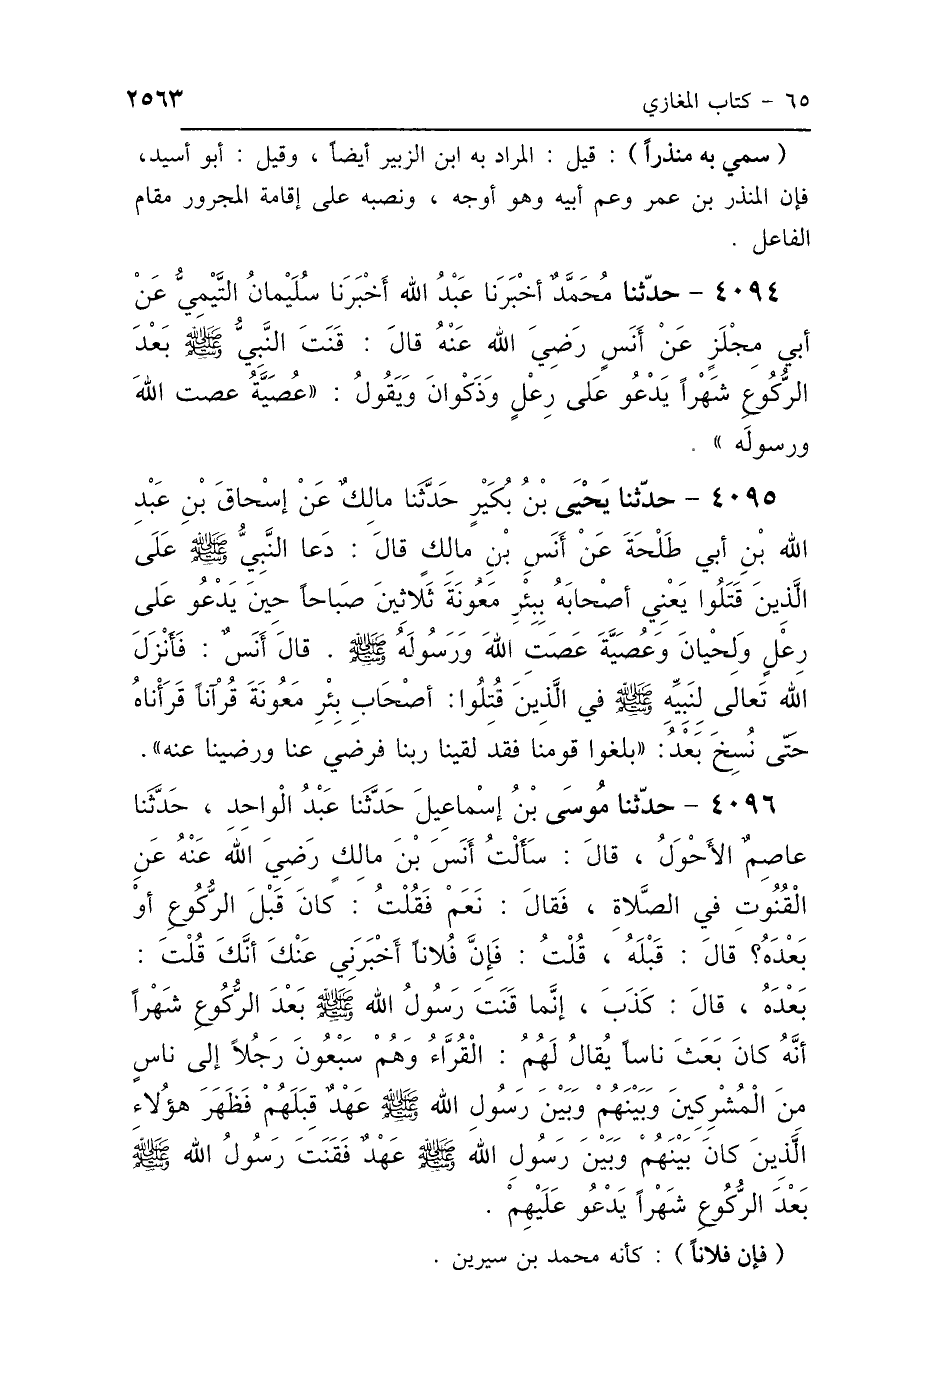 ٦٥ - كتاب المغازي ٢٥٦٣
( سمي به منذراً ) : قيل : المراد به ابن الزبير أيضاً ، وقيل : أبو أسيد،
فإن المنذر بن عمر وعم أبيه وهو أوجه ، ونصبه على إقامة المجرور مقام
الفاعل .
٤٠٩٤ - حدّثنا مُحَمَّدٌ أخْبَرَنَا عَبْدُ الله أَخْبَرَنَا سُلَيْمانُ التَّيْمِيُّ عَنْ
أبي مِجْلَزٍ عَنْ أنَسٍ رَضِيَ الله عَنْهُ قالَ : قَنَتَ النَّبِيُّ ﷺ بَعْدَ
الرُّكُوعِ شَهْراً يَدْعُو عَلى رِعْلٍ وَذَكْوانَ وَيَقُولُ : «عُصَيَّةُ عصت اللهَ
ورسولَه » .
٤٠٩٥ - حدّثنا يَحْيَى بْنُ بُكَيْرٍ حَدَّثَنا مالِكٌ عَنْ إسْحاقَ بْنِ عَبْدِ
الله بْنِ أبي طَلْحَةَ عَنْ أنَسِ بْنِ مالِكٍ قالَ : دَعا النَّبِيُّ ﷺ عَلَى
الَّذِينَ قَتَلُوا يَعْنِي أصْحابَهُ بِبِئْرِ مَعُونَةَ ثَلاثِينَ صَباحاً حِينَ يَدْعُو عَلى
رِعْلٍ ولَحْيانَ وَعُصَيَّةَ عَصَتِ اللهَ وَرَسُولَهُ ﷺ . قالَ أنَسٌ : فَأَنْزَلَ
الله تَعالى لِنَبِيِّهِ ﷺ في الَّذِينَ قُتِلُوا: أصْحَابِ بِئْرِ مَعُونَةَ قُرْآناً قَرَأْناهُ
حَتّى نُسِخَ بَعْدُ: «بلغوا قومنا فقد لقينا ربنا فرضي عنا ورضينا عنه».
٤٠٩٦ - حدّثنا مُوسَى بْنُ إسْماعِيلَ حَدَّثَنا عَبْدُ الْواحِدِ ، حَدَّثَنا
عاصِمٌ الأَحْوَلُ ، قالَ : سَأَلْتُ أنَسَ بْنَ مالِكٍ رَضِيَ الله عَنْهُ عَنِ
الْقُنُوتِ في الصَّلاةِ ، فَقالَ : نَعَمْ فَقُلْتُ : كانَ قَبْلَ الرُّكُوعِ أوْ
بَعْدَهُ؟ قالَ : قَبْلَهُ ، قُلْتُ : فَإنَّ فُلاناً أَخْبَرَنِي عَنْكَ أنَّكَ قُلْتَ :
بَعْدَهُ ، قالَ : كَذَبَ ، إنَّما قَنَتَ رَسُولُ الله ﷺ بَعْدَ الرُّكُوعِ شَهْراً
أنَّهُ كانَ بَعَثَ ناساً يُقالُ لَهُمُ : الْقُرَّاءُ وَهُمْ سَبْعُونَ رَجُلاً إلى ناسٍ
مِنَ الْمُشْرِكِينَ وَبَيْنَهُمْ وَبَيْنَ رَسُولِ الله ﷺ عَهْدٌ قِبَلَهُمْ فَظَهَرَ هؤُلاءِ
الَّذِينَ كانَ بَيْنَهُمْ وَبَيْنَ رَسُولِ الله ﷺ عَهْدٌ فَقَنَتَ رَسُولُ الله ﷺ
بَعْدَ الرُّكُوعِ شَهْراً يَدْعُو عَلَيْهِمْ .
( فإن فلاناً ) : كأنه محمد بن سيرين .